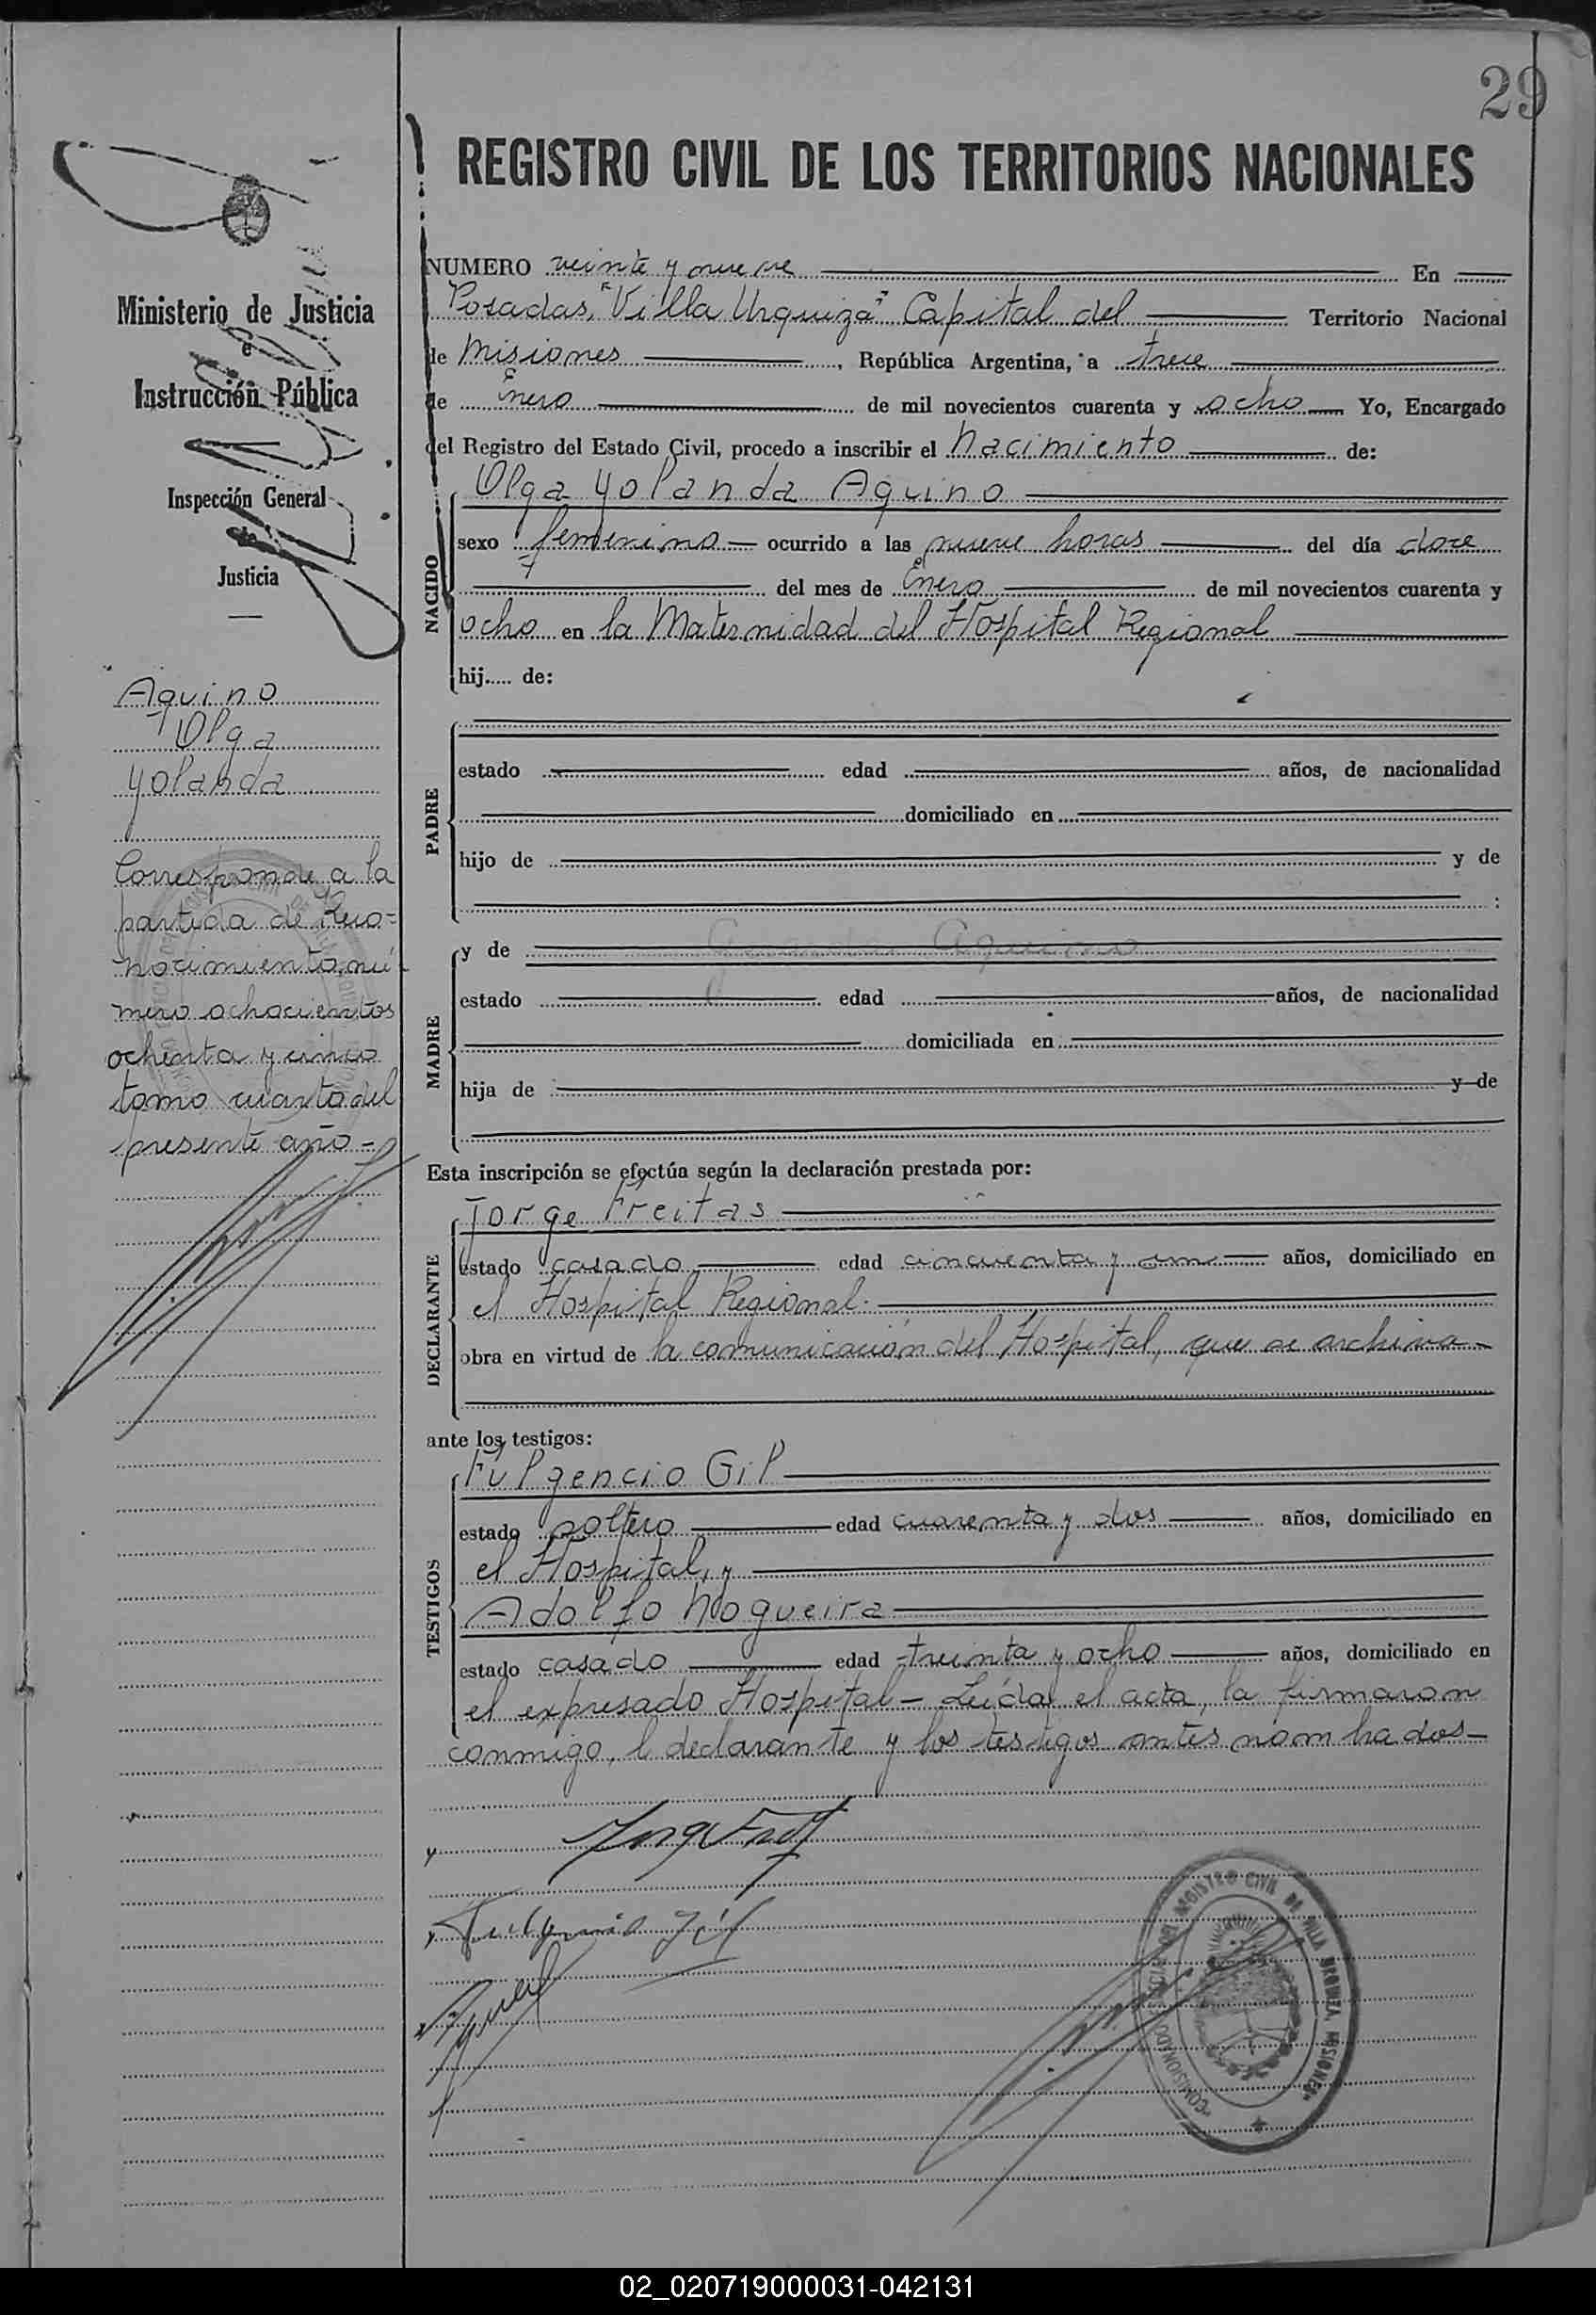 29
REGISTRO CIVIL DE LOS TERRITORIOS NACIONALES
Ministerio de Justicia
e
Instrucción Pública
Inspección General
de
Justicia
Aquino
Olga
Yolanda
Corresponde a la
partida de Reco=
nocimiento, nú-
mero ochocientos
ochenta y cinco
tomo cuarto del
presente año =
NUMERO veinte y nueve En
Posadas, "Villa Urquiza" Capital del Territorio Nacional
de Misiones, República Argentina, a trece
de Enero de mil novecientos cuarenta y ocho Yo, Encargado
del Registro del Estado Civil, procedo a inscribir el Nacimiento de:
NACIDO
Olga Yolanda Aquino
sexo femenino ocurrido a las nueve horas del día doce
del mes de Enero de mil novecientos cuarenta y
ocho en la Maternidad del Hospital Regional
hij..... de:
PADRE
estado edad años, de nacionalidad
domiciliado en
hijo de y de
:
MADRE
y de Aquino
estado edad años, de nacionalidad
domiciliada en
hija de y de
Esta inscripción se efectúa según la declaración prestada por:
DECLARANTE
Jorge Freitas
estado casado edad cincuenta y un años, domiciliado en
el Hospital Regional.
obra en virtud de la comunicación del Hospital, que se archiva
ante los testigos:
TESTIGOS
Fulgencio Gil
estado soltero edad cuarenta y dos años, domiciliado en
el Hospital, y
Adolfo Nogueira
estado casado edad treinta y ocho años, domiciliado en
el expresado Hospital - Leída el acta, la firmaron
conmigo, l declarante y los testigos antes nombrados-
Fulgencio Gil
REGISTRO CIVIL DE VILLA URQUIZA, MISIONES
COMISIONADO
02_020719000031-042131